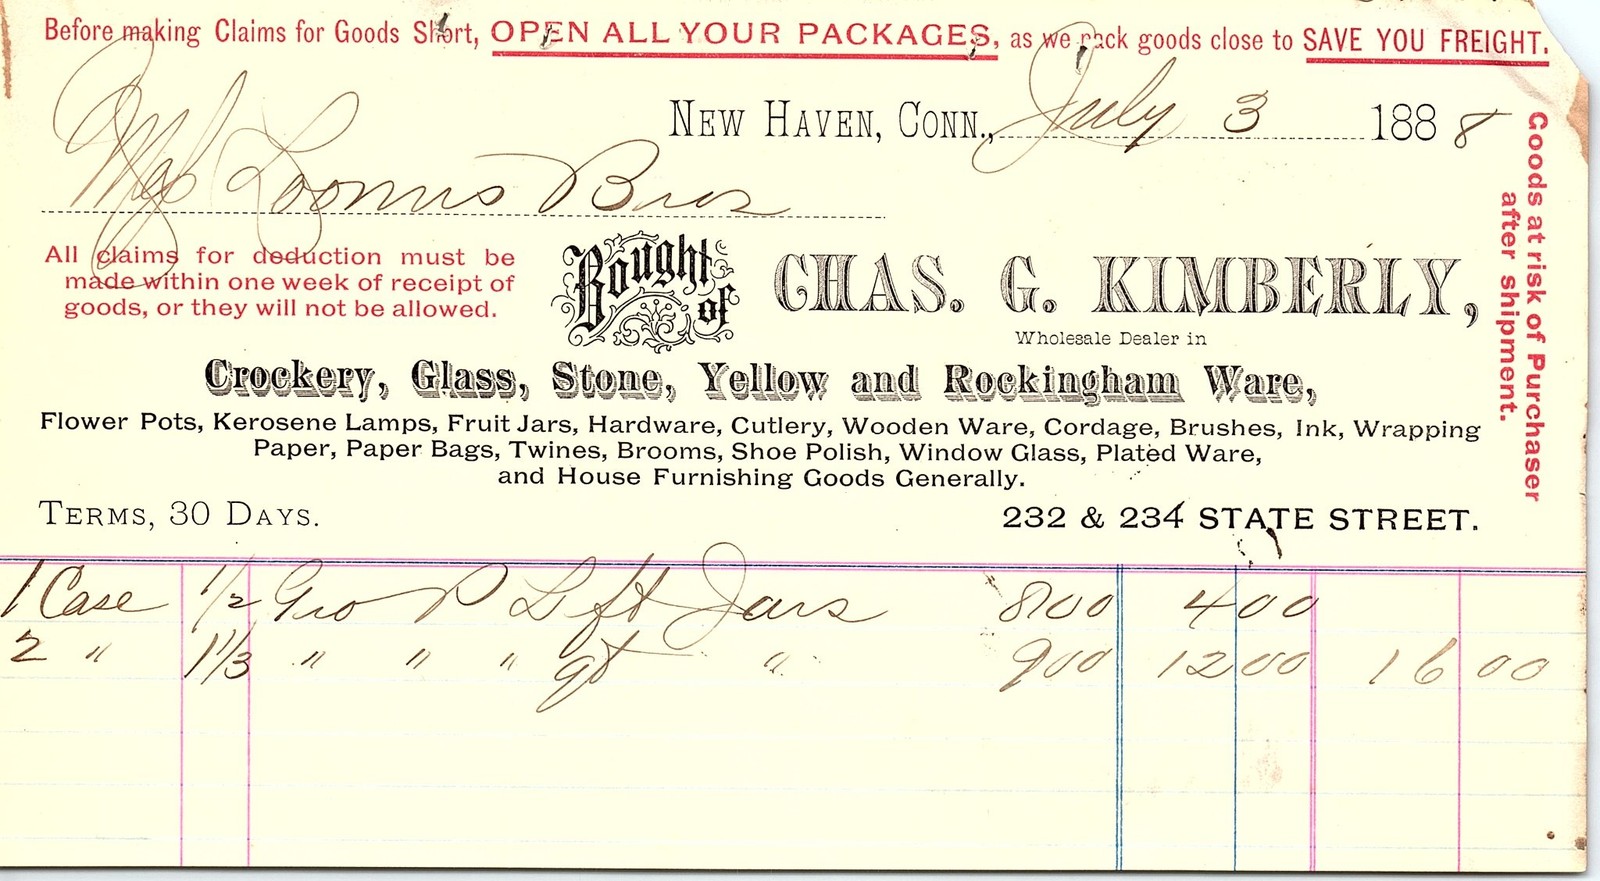 Before making Claims for Goods Short, OPEN ALL YOUR PACKAGES, as we pack goods close to SAVE YOU FREIGHT.
NEW HAVEN, CONN., July 3 1888
Loomis Bros
All claims for deduction must be
made within one week of receipt of
goods, or they will not be allowed.
Bought of
CHAS. G. KIMBERLY,
Wholesale Dealer in
Crockery, Glass, Stone, Yellow and Rockingham Ware,
Flower Pots, Kerosene Lamps, Fruit Jars, Hardware, Cutlery, Wooden Ware, Cordage, Brushes, Ink, Wrapping
Paper, Paper Bags, Twines, Brooms, Shoe Polish, Window Glass, Plated Ware,
and House Furnishing Goods Generally.
TERMS, 30 DAYS.
232 & 234 STATE STREET.
Goods at risk of Purchaser
after shipment.
1 Case 1/2 Gro P L Jars 800 400
2 " 1 1/3 " " " qt " 900 1200 16 00